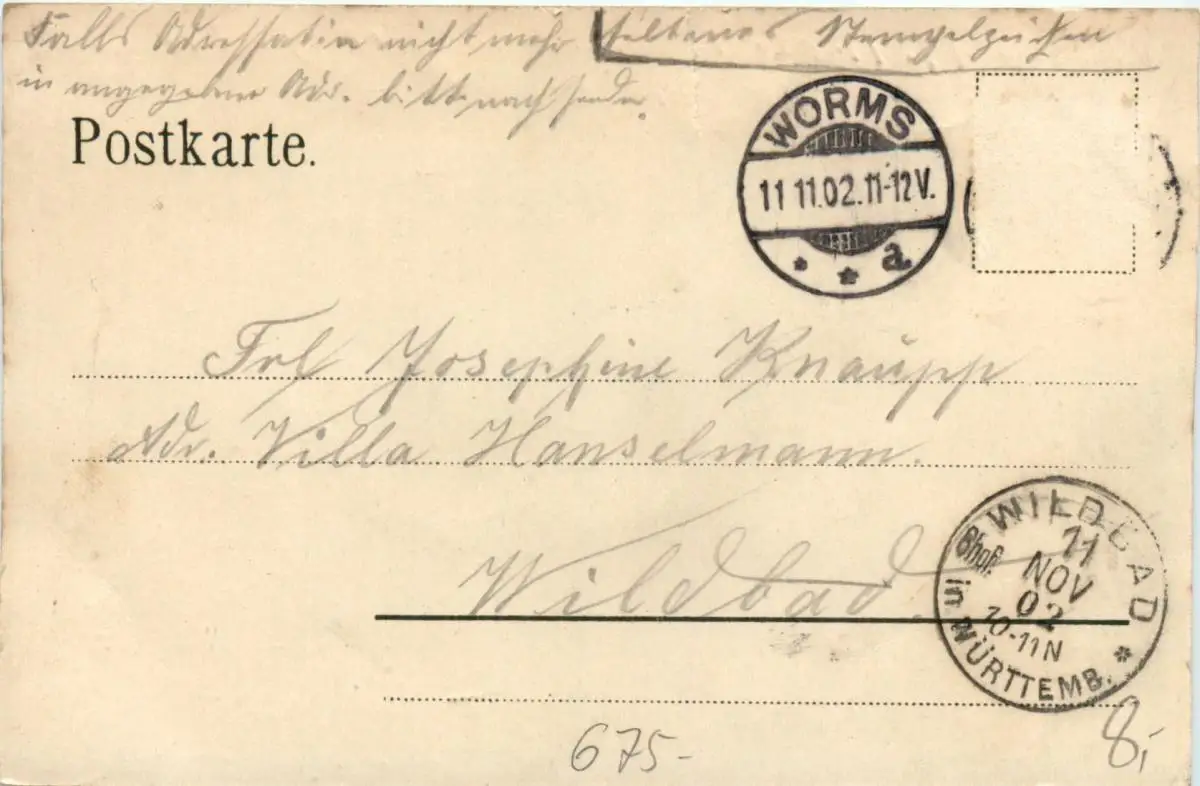 Falls Adressatin nicht mehr seltenes Stempelzeichen
in angegebner Adr. bitte nachsenden.
Postkarte.
WORMS
11 11.02.11-12V.
* * a.
Frl Josephine Knaupp
Adr. Villa Hanselmann.
Wildbad.
WILDBAD
Bhof.
11
NOV
02
10-11N
in WÜRTTEMB. *
675-
8,-